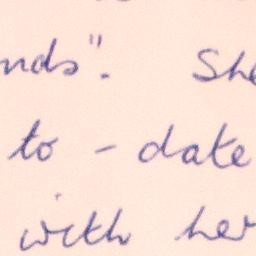 nds". She
to - date
with her